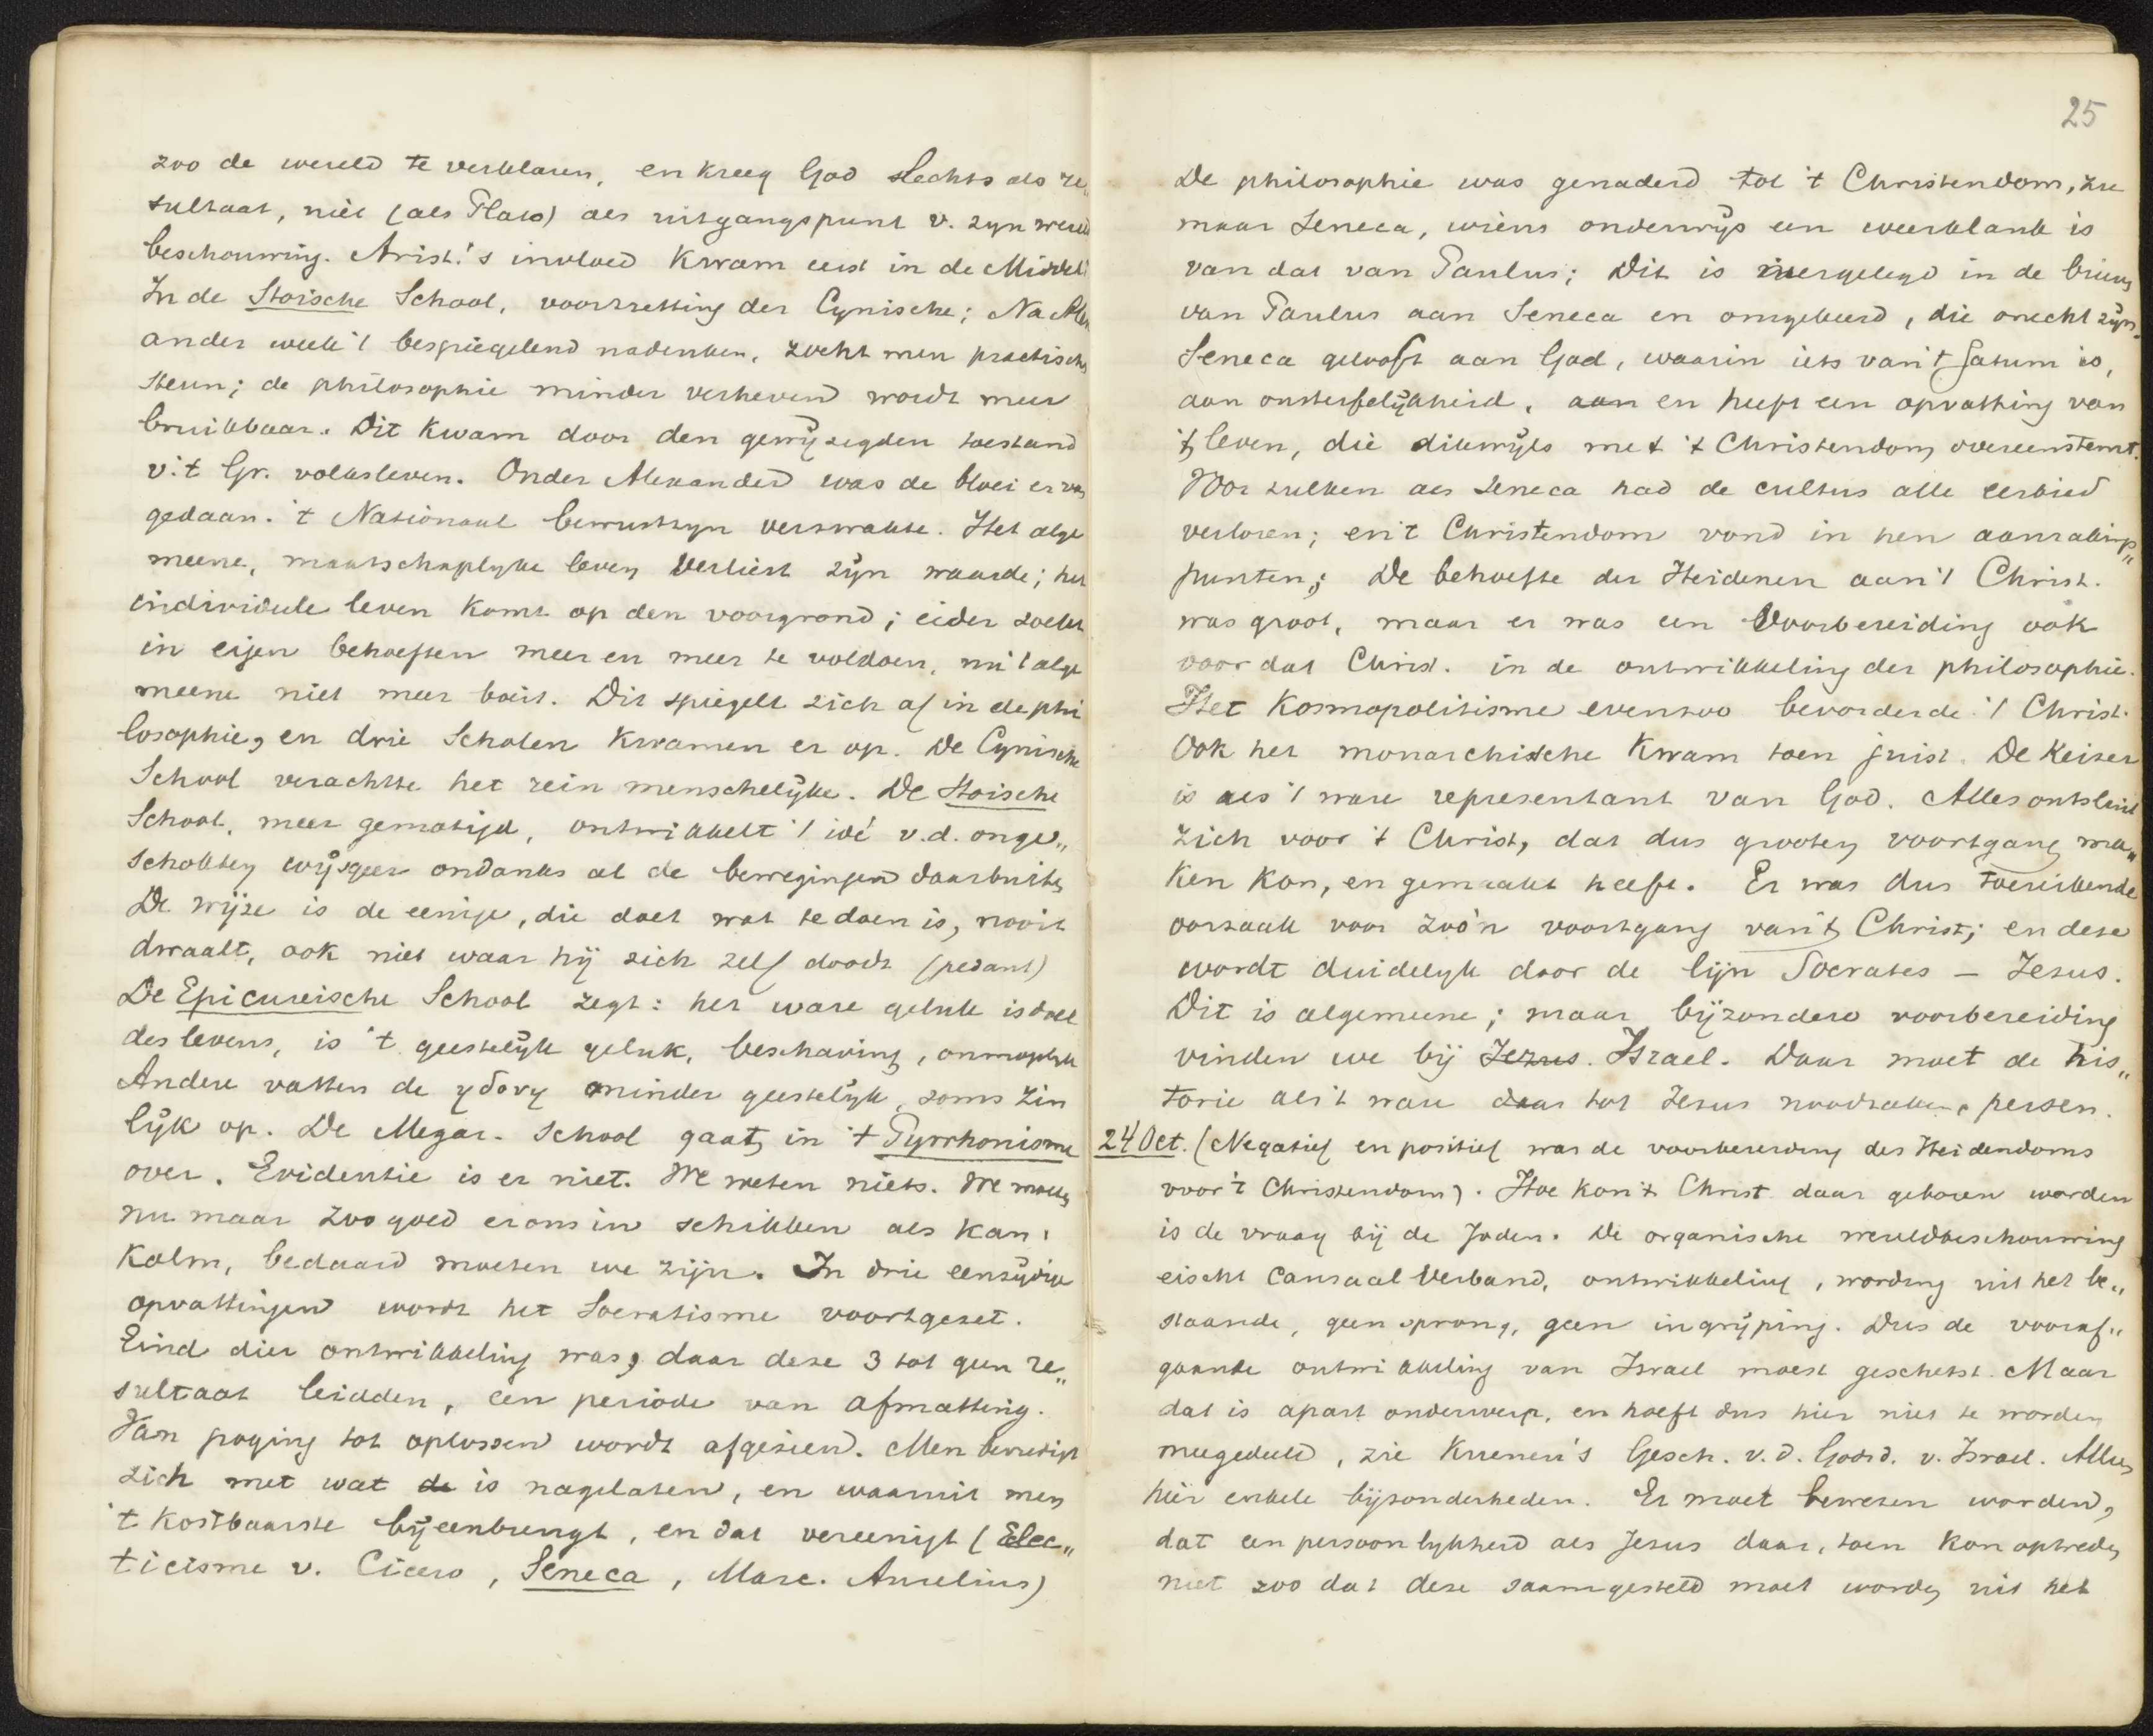 zoo de wereld te verklaren, en kreeg God slechts als re„
sultaat, niet (als Plato) als uitgangspunt v. zyn wereld
beschouwing. Arist.'s invloed kwam eerst in de Middel
In de Stoische School, voortzetting der Cynische; Na Alex
ander week 't bespiegelend nadenken, zocht men practische
steun; de philosophie minder verheven wordt meer
bruikbaar. Dit kwam door den gewyzigden toestand
v. 't Gr. volksleven. Onder Alexander was de bloei er van
gedaan. 't Nationaal bewustzyn verzwakte. Het alge
meene, maatschaplyke leven verliest zÿn waarde; het
individuele leven komt op den voorgrond; eider zoekt
in eigen behoeften meer en meer te voldoen, nu 't alge
meene niet meer boeit. Dit spiegelt zich af in de phi
losophie, en drie Scholen kwamen er op. De Cynische
School verachtte het rein menschelÿke. De Stoische
School, meer gematigd, ontwikkelt 't ideé v.d. onge„
schokten wÿsgeer ondanks al de bewegingen daarbuiten
De wÿze is de eenige, die doet wat te doen is, nooit
dwaalt, ook niet waar hÿ zich zelf doodt (pedant)
De Epicureische School zegt: het ware geluk is doel
des levens, is 't geestelÿk geluk, beschaving,
Andere vatten de ηδονη minder geestelÿk, soms zin
lÿk op. De Megar. School gaat in 't Pyrrhonisme
over. Evidentie is er niet. We weten niets. We moeten
nu maar zoo goed er ons in schikken als kan.
Kalm, bedaard moeten we zijn. In drie eenzÿdige
opvattingen wordt het Socratisme voortgezet.
Eind dier ontwikkeling was, daar deze 3 tot geen re„
sultaat leidden, een periode van afmatting.
Van poging tot oplossen wordt afgezien. Men bevredigt
zich met wat de is nagelaten, en waaruit men
't kostbaarste bÿeenbrengt, en dat vereenigt (Elec„
ticisme v. Cicero, Seneca, Marc. Aurelius)
25
De philosophie was genaderd tot 't Christendom, zie
maar Seneca, wiens onderwÿs een weerklank is
van dat van Paulus; Dit is in de brieven
van Paulus aan Seneca en omgekeerd, die onecht zÿn.
Seneca gelooft aan God, waarin iets van 't fatum is,
aan onsterfelÿkheid, aan en heeft een opvatting van
't leven, die dikwÿls met 't Christendom overeenstemt.
Voor zulken als Seneca had de cultus alle eerbied
verloren; en 't Christendom vond in hen aanrakings„
punten; De behoefte der Heidenen aan 't Christ.
was groot, maar er was een voorbereiding ook
voor dat Christ. in de ontwikkeling der philosophie.
Het Kosmopolitisme evenzoo bevorderde 't Christ.
Ook het monarchische kwam toen juist. De Keizer
is als 't ware representant van God. Alles ontsluit
zich voor 't Christ, dat dus grooten voortgang ma„
ken kon, en gemaakt heeft. Er was dus toereikende
oorzaak voor zoo'n voortgang van 't Christ; en deze
wordt duidelyk door de lijn Socrates – Jezus.
Dit is algemeene; maar bÿzondere voorbereiding
vinden we bÿ Jezus. Israel. Daar moet de his„
torie als 't ware daar tot Jezus persen.
24 Oct. (Negatief en positief was de voorbereiding des Heidendoms
voor 't Christendom). Hoe kon 't Christ daar geboren worden
is de vraag bÿ de Joden. De organische wereldbeschouwing
eischt Causaal Verband, ontwikkeling, wording uit het be„
staande, geen sprong, geen ingrÿping. Dus de vooraf„
gaande ontwikkeling van Israel moest geschetst. Maar
dat is apart onderwerp, en hoeft dus hier niet te worden
meegedeeld, zie Kuenen's Gesch. v. d. Godsd. v. Israel. Alleen
hier enkele bÿzonderheden. Er moet bewezen worden,
dat een persoonlykheid als Jezus daar, toen kon optreden
niet zoo dat deze saamgesteld moet worden uit het